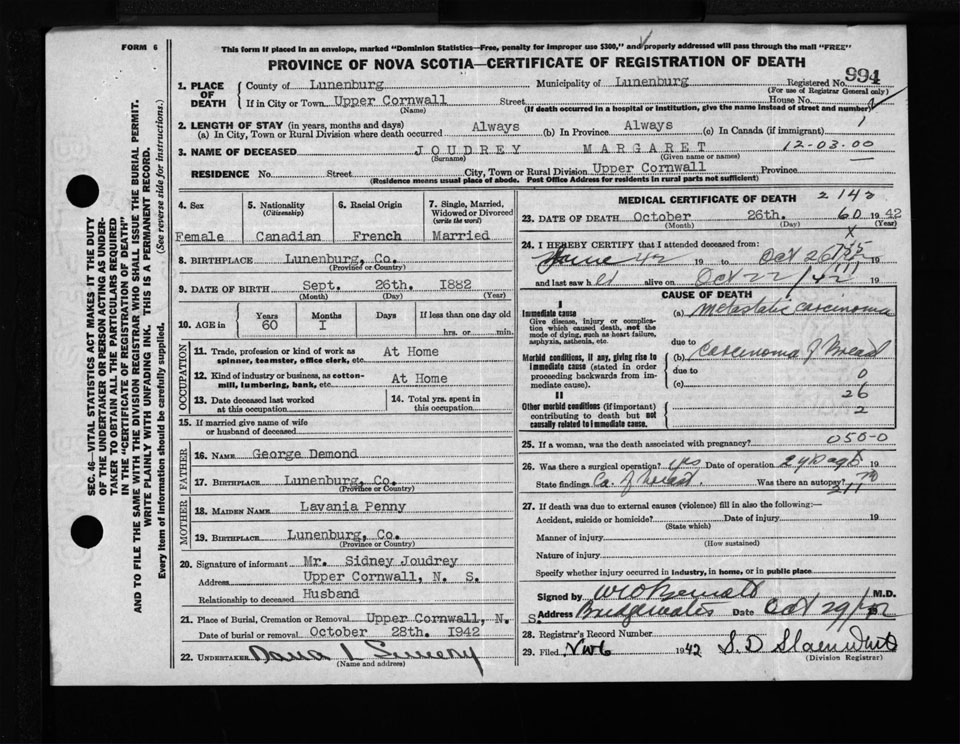 FORM 6
This form if placed in an envelope, marked "Dominion Statistics—Free, penalty for improper use $300," and properly addressed will pass through the mail "FREE"
PROVINCE OF NOVA SCOTIA—CERTIFICATE OF REGISTRATION OF DEATH
994
1. PLACE OF DEATH
County of Lunenburg Municipality of Lunenburg Registered No.
(For use of Registrar General only)
If in City or Town Upper Cornwall Street House No.
(Name) (If death occurred in a hospital or institution, give the name instead of street and number)
2. LENGTH OF STAY (in years, months and days)
(a) In City, Town or Rural Division where death occurred Always (b) In Province Always (c) In Canada (if immigrant)
3. NAME OF DECEASED JOUDREY MARGARET 12-03-00
(Surname) (Given name or names)
RESIDENCE No. Street City, Town or Rural Division Upper Cornwall Province
(Residence means usual place of abode. Post Office Address for residents in rural parts not sufficient)
SEC. 46—VITAL STATISTICS ACT MAKES IT THE DUTY
OF THE UNDERTAKER OR PERSON ACTING AS UNDER-
TAKER TO OBTAIN ALL THE PARTICULARS REQUIRED
IN THE "CERTIFICATE OF REGISTRATION OF DEATH"
AND TO FILE THE SAME WITH THE DIVISION REGISTRAR WHO SHALL ISSUE THE BURIAL PERMIT.
WRITE PLAINLY WITH UNFADING INK. THIS IS A PERMANENT RECORD.
Every item of Information should be carefully supplied. (See reverse side for instructions.)
4. Sex 5. Nationality 6. Racial Origin 7. Single, Married,
(Citizenship) Widowed or Divorced
(write the word)
Female Canadian French Married
8. BIRTHPLACE Lunenburg, Co.
(Province or Country)
9. DATE OF BIRTH Sept. 26th. 1882
(Month) (Day) (Year)
10. AGE in Years Months Days If less than one day old
60 I hrs. or min.
OCCUPATION
11. Trade, profession or kind of work as At Home
spinner, teamster, office clerk, etc.
12. Kind of industry or business, as cotton- At Home
mill, lumbering, bank, etc.
13. Date deceased last worked 14. Total yrs. spent in
at this occupation this occupation
15. If married give name of wife
or husband of deceased
FATHER
16. NAME George Demond
17. BIRTHPLACE Lunenburg, Co.
(Province or Country)
MOTHER
18. MAIDEN NAME Lavania Penny
19. BIRTHPLACE Lunenburg, Co.
(Province or Country)
20. Signature of informant Mr. Sidney Joudrey
Address Upper Cornwall, N. S.
Relationship to deceased Husband
21. Place of Burial, Cremation or Removal Upper Cornwall, N. S.
Date of burial or removal October 28th. 1942
22. UNDERTAKER
(Name and address)
MEDICAL CERTIFICATE OF DEATH 2142
23. DATE OF DEATH October 26th. 60 1942
(Month) (Day) (Year)
24. I HEREBY CERTIFY that I attended deceased from:
42 19 to Oct 26
and last saw h er alive on Oct 22 / 42 19
CAUSE OF DEATH
I
Immediate cause (a) Metastatic carcinoma
Give disease, injury or complica-
tion which caused death, not the
mode of dying, such as heart failure,
asphyxia, asthenia, etc.
due to
Morbid conditions, if any, giving rise to (b) Carcinoma of Breast
immediate cause (stated in order due to
proceeding backwards from im- 0
mediate cause). (c)
II 26
Other morbid conditions (if important) 2
contributing to death but not
causally related to immediate cause.
25. If a woman, was the death associated with pregnancy? 050-0
26. Was there a surgical operation? yes Date of operation 2 yrs ago 19
State findings Ca. of breast. Was there an autopsy? no
27. If death was due to external causes (violence) fill in also the following:—
Accident, suicide or homicide? Date of injury 19
(State which)
Manner of injury
(How sustained)
Nature of injury
Specify whether injury occurred in industry, in home, or in public place
Signed by M.D.
Address Bridgewater Date Oct 29/42
28. Registrar's Record Number
29. Filed 1942
(Division Registrar)